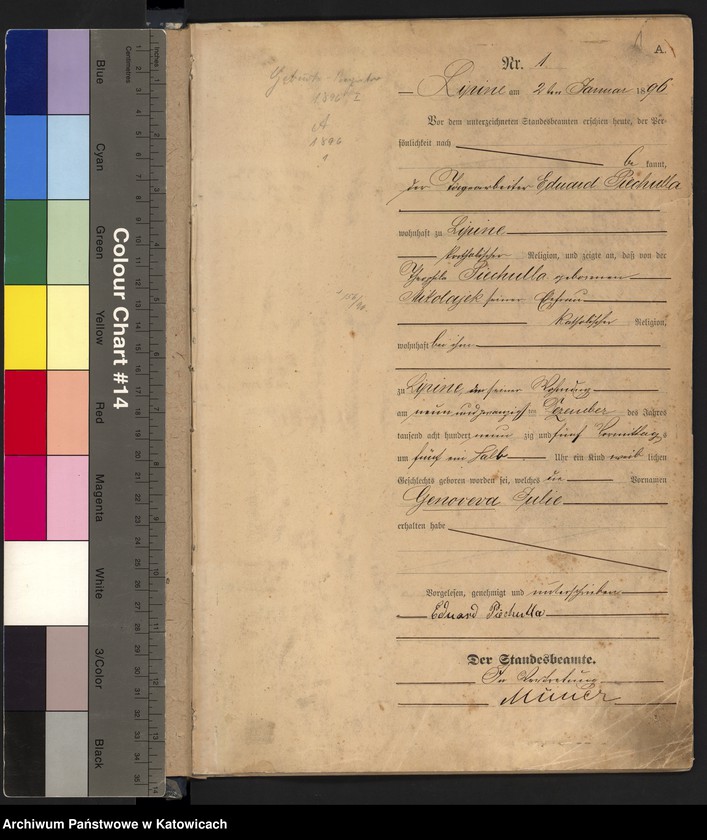 A.
Nr. 1
Lipine am 2ten Januar 1896
Vor dem unterzeichneten Standesbeamten erschien heute, der Per-
sönlichkeit nach
be kannt,
der Eduard Piechulla
wohnhaft zu Lipine
katholischer Religion, und zeigte an, daß von der
Theophila Piechulla geborenen
Mikolajek seiner Ehefrau
katholischer Religion,
wohnhaft bei ihm
zu Lipine in seiner Wohnung
am neun und zwanzigsten Dezember des Jahres
tausend acht hundert neun zig und fünf Vormittags
um fünf ein halb Uhr ein Kind weib lichen
Geschlechts geboren worden sei, welches die Vornamen
Genoveva Julie
erhalten habe
Vorgelesen, genehmigt und unterschrieben
Eduard Piechulla
Der Standesbeamte.
In Vertretung
Colour Chart #14
Blue
Cyan
Green
Yellow
Red
Magenta
White
3/Color
Black
Centimetres
Inches
Archiwum Państwowe w Katowicach